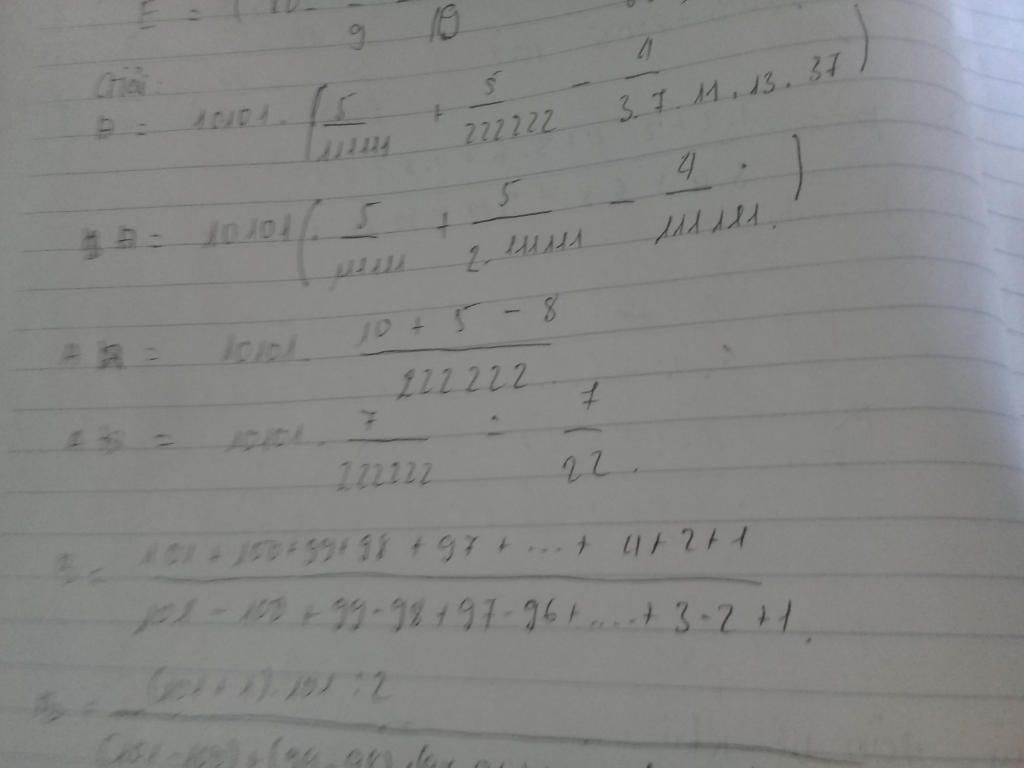 E = ( 10
9
Giải:
D = 10101 . ( 5/111111 + 5/222222 - 4/3.7.11.13.37 )
D = 10101 ( . 5/111111 + 5/2.111111 - 4/111111 . )
A = 10101 . 10 + 5 - 8/222222
= 10101 . 7/222222 = 7/22 .
= 101 + 100 + 99 + 98 + 97 + ... + 4 + 2 + 1/101 - 100 + 99 - 98 + 97 - 96 + .... + 3 - 2 + 1 .
= (101 + 1) . 101 : 2